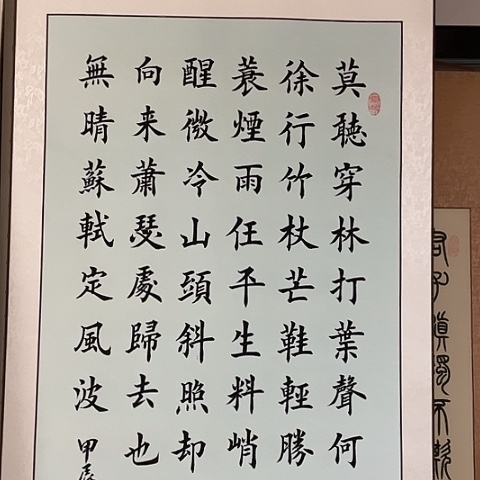 莫聽穿林打葉聲何
徐行竹杖芒鞋輕勝
蓑煙雨任平生料峭
醒微冷山頭斜照却
向来蕭瑟處歸去也
無晴蘇軾定風波
甲辰
君子慎獨不欺